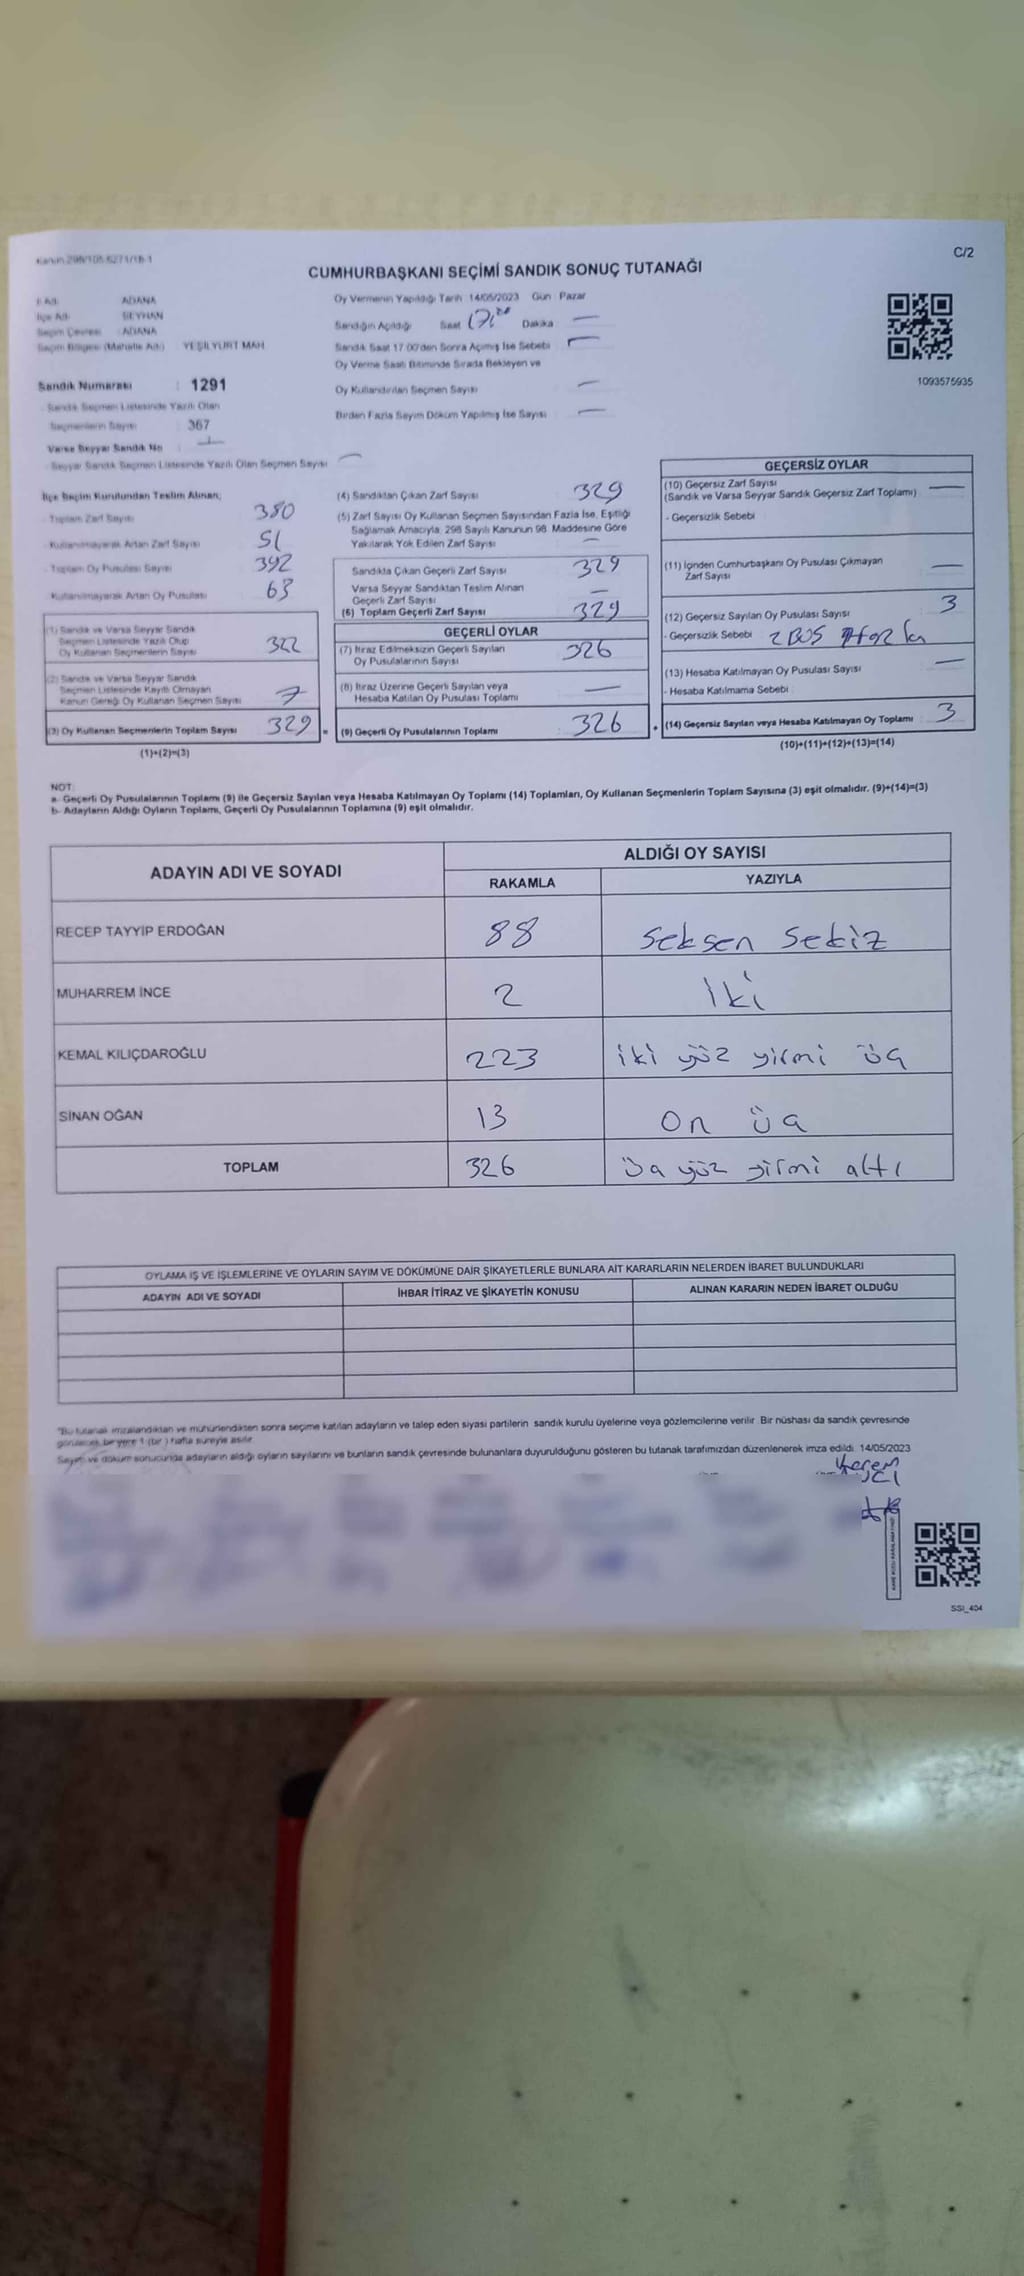 Kanun 298/105-6271/18-1
C/2
CUMHURBAŞKANI SEÇİMİ SANDIK SONUÇ TUTANAĞI
İl Adı : ADANA
İlçe Adı : SEYHAN
Seçim Çevresi : ADANA
Seçim Bölgesi (Mahalle Adı) : YEŞİLYURT MAH.
Sandık Numarası : 1291
- Sandık Seçmen Listesinde Yazılı Olan
Seçmenlerin Sayısı : 367
Varsa Seyyar Sandık No
- Seyyar Sandık Seçmen Listesinde Yazılı Olan Seçmen Sayısı
Oy Vermenin Yapıldığı Tarih : 14/05/2023 Gün : Pazar
Sandığın Açıldığı Saat 17.00 Dakika —
Sandık Saat 17.00'den Sonra Açımış İse Sebebi
Oy Verme Saati Bitiminde Sırada Bekleyen ve
Oy Kullandırılan Seçmen Sayısı —
Birden Fazla Sayım Döküm Yapılmış İse Sayısı —
1093575935
İlçe Seçim Kurulundan Teslim Alınan;
- Toplam Zarf Sayısı 380
- Kullanılmayarak Artan Zarf Sayısı 51
- Toplam Oy Pusulası Sayısı 392
- Kullanılmayarak Artan Oy Pusulası 63
(1) Sandık ve Varsa Seyyar Sandık
Seçmen Listesinde Yazılı Olup
Oy Kullanan Seçmenlerin Sayısı 322
(2) Sandık ve Varsa Seyyar Sandık
Seçmen Listesinde Kayıtlı Olmayan
Kanun Gereği Oy Kullanan Seçmen Sayısı 7
(3) Oy Kullanan Seçmenlerin Toplam Sayısı 329
(1)+(2)=(3)
(4) Sandıktan Çıkan Zarf Sayısı 329
(5) Zarf Sayısı Oy Kullanan Seçmen Sayısından Fazla İse, Eşitliği
Sağlamak Amacıyla, 298 Sayılı Kanunun 98. Maddesine Göre
Yakılarak Yok Edilen Zarf Sayısı —
Sandıkta Çıkan Geçerli Zarf Sayısı 329
Varsa Seyyar Sandıktan Teslim Alınan
Geçerli Zarf Sayısı —
(6) Toplam Geçerli Zarf Sayısı 329
GEÇERLİ OYLAR
(7) İtiraz Edilmeksizin Geçerli Sayılan
Oy Pusulalarının Sayısı 326
(8) İtiraz Üzerine Geçerli Sayılan veya
Hesaba Katılan Oy Pusulası Toplamı —
= (9) Geçerli Oy Pusulalarının Toplamı 326
GEÇERSİZ OYLAR
(10) Geçersiz Zarf Sayısı —
(Sandık ve Varsa Seyyar Sandık Geçersiz Zarf Toplamı)
- Geçersizlik Sebebi
(11) İçinden Cumhurbaşkanı Oy Pusulası Çıkmayan
Zarf Sayısı —
(12) Geçersiz Sayılan Oy Pusulası Sayısı 3
- Geçersizlik Sebebi 2 BOŞ
(13) Hesaba Katılmayan Oy Pusulası Sayısı —
- Hesaba Katılmama Sebebi
+ (14) Geçersiz Sayılan veya Hesaba Katılmayan Oy Toplamı 3
(10)+(11)+(12)+(13)=(14)
NOT:
a- Geçerli Oy Pusulalarının Toplamı (9) ile Geçersiz Sayılan veya Hesaba Katılmayan Oy Toplamı (14) Toplamları, Oy Kullanan Seçmenlerin Toplam Sayısına (3) eşit olmalıdır. (9)+(14)=(3)
b- Adayların Aldığı Oyların Toplamı, Geçerli Oy Pusulalarının Toplamına (9) eşit olmalıdır.
ADAYIN ADI VE SOYADI
ALDIĞI OY SAYISI
RAKAMLA YAZIYLA
RECEP TAYYİP ERDOĞAN 88 Seksen Sekiz
MUHARREM İNCE 2 İki
KEMAL KILIÇDAROĞLU 223 iki yüz yirmi üç
SİNAN OĞAN 13 On üç
TOPLAM 326 Üç yüz yirmi altı
OYLAMA İŞ VE İŞLEMLERİNE VE OYLARIN SAYIM VE DÖKÜMÜNE DAİR ŞİKAYETLERLE BUNLARA AİT KARARLARIN NELERDEN İBARET BULUNDUKLARI
ADAYIN ADI VE SOYADI İHBAR İTİRAZ VE ŞİKAYETİN KONUSU ALINAN KARARIN NEDEN İBARET OLDUĞU
*Bu tutanak imzalandıktan ve mühürlendikten sonra seçime katılan adayların ve talep eden siyasi partilerin sandık kurulu üyelerine veya gözlemcilerine verilir. Bir nüshası da sandık çevresinde
görülecek bir yere 1 (bir ) hafta süreyle asılır.
Sayım ve döküm sonucunda adayların aldığı oyların sayılarını ve bunların sandık çevresinde bulunanlara duyurulduğunu gösteren bu tutanak tarafımızdan düzenlenerek imza edildi. 14/05/2023
SSI_404